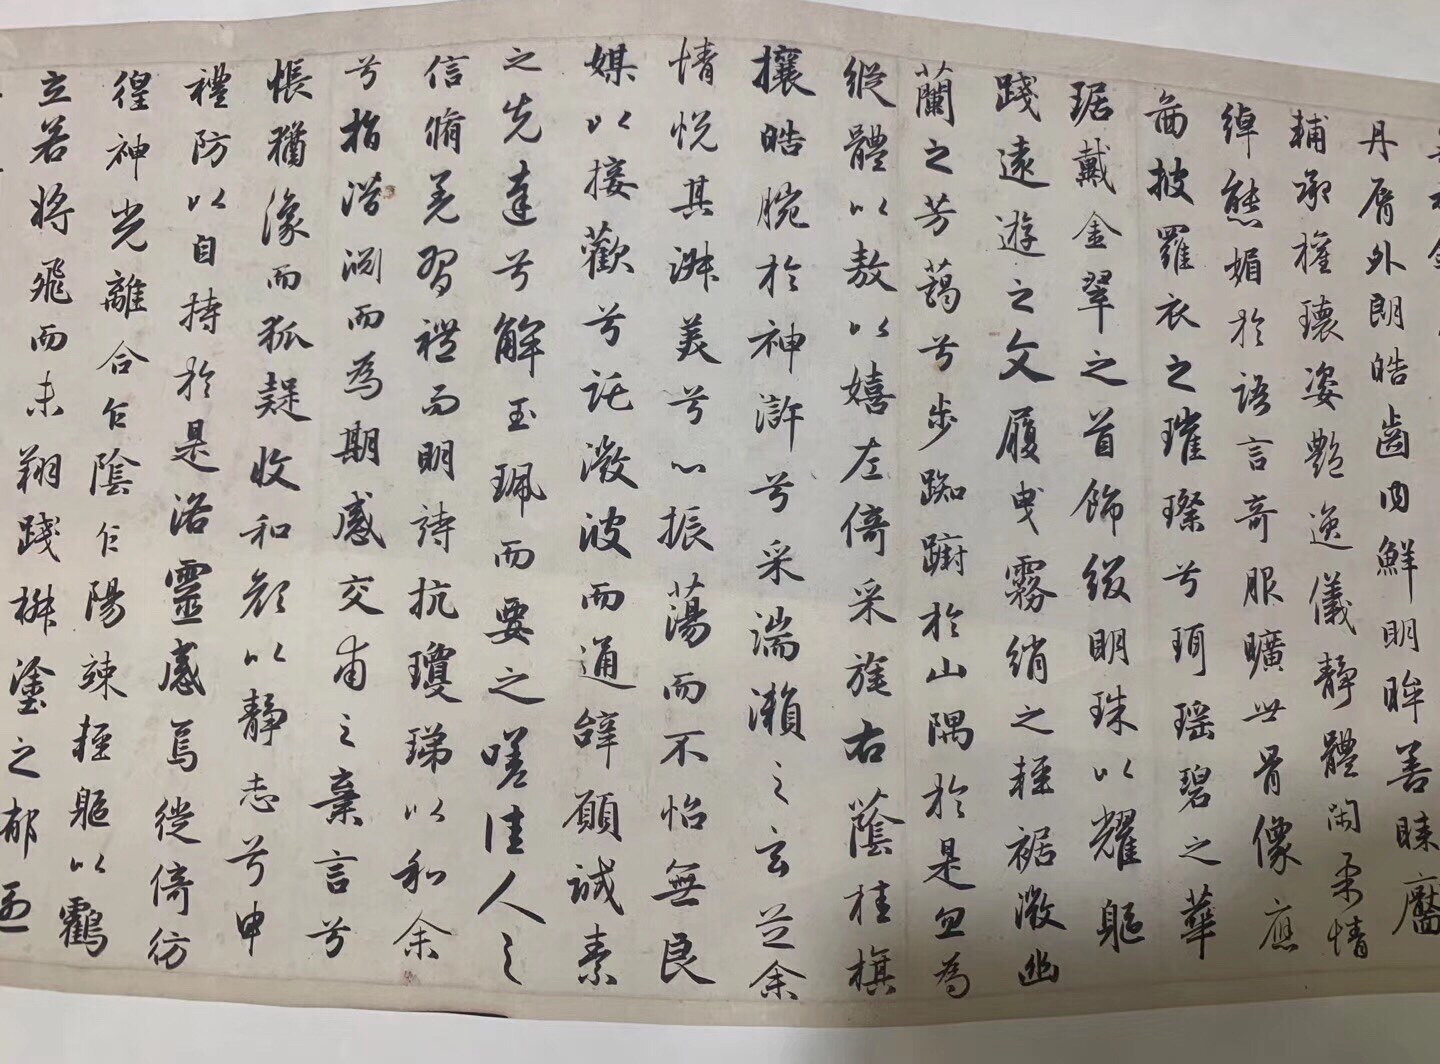 丹脣外朗皓齒內鮮明眸善睞靨
輔承權瓌姿艷逸儀靜體閑柔情
綽態媚於語言奇服曠世骨像應
啚披羅衣之璀璨兮珥瑤碧之華
琚戴金翠之首飾綴明珠以耀軀
踐遠遊之文履曳霧綃之輕裾微幽
蘭之芳藹兮步踟躕於山隅於是忽為
縱體以敖以嬉左倚采旄右蔭桂旗
攘皓腕於神滸兮采湍瀨之玄芝余
情悅其淋美兮心振蕩而不怡無良
媒以接歡兮託微波而通辭願誠素
之先達兮解玉珮而要之嗟佳人之
信脩羌習禮而明詩抗瓊珶以和余
兮指潛淵而為期感交甫之棄言兮
悵猶豫而狐疑收和顏以靜志兮申
禮防以自持於是洛靈感焉徙倚彷
徨神光離合乍陰乍陽竦輕軀以鶴
立若將飛而未翔踐椒塗之郁烈